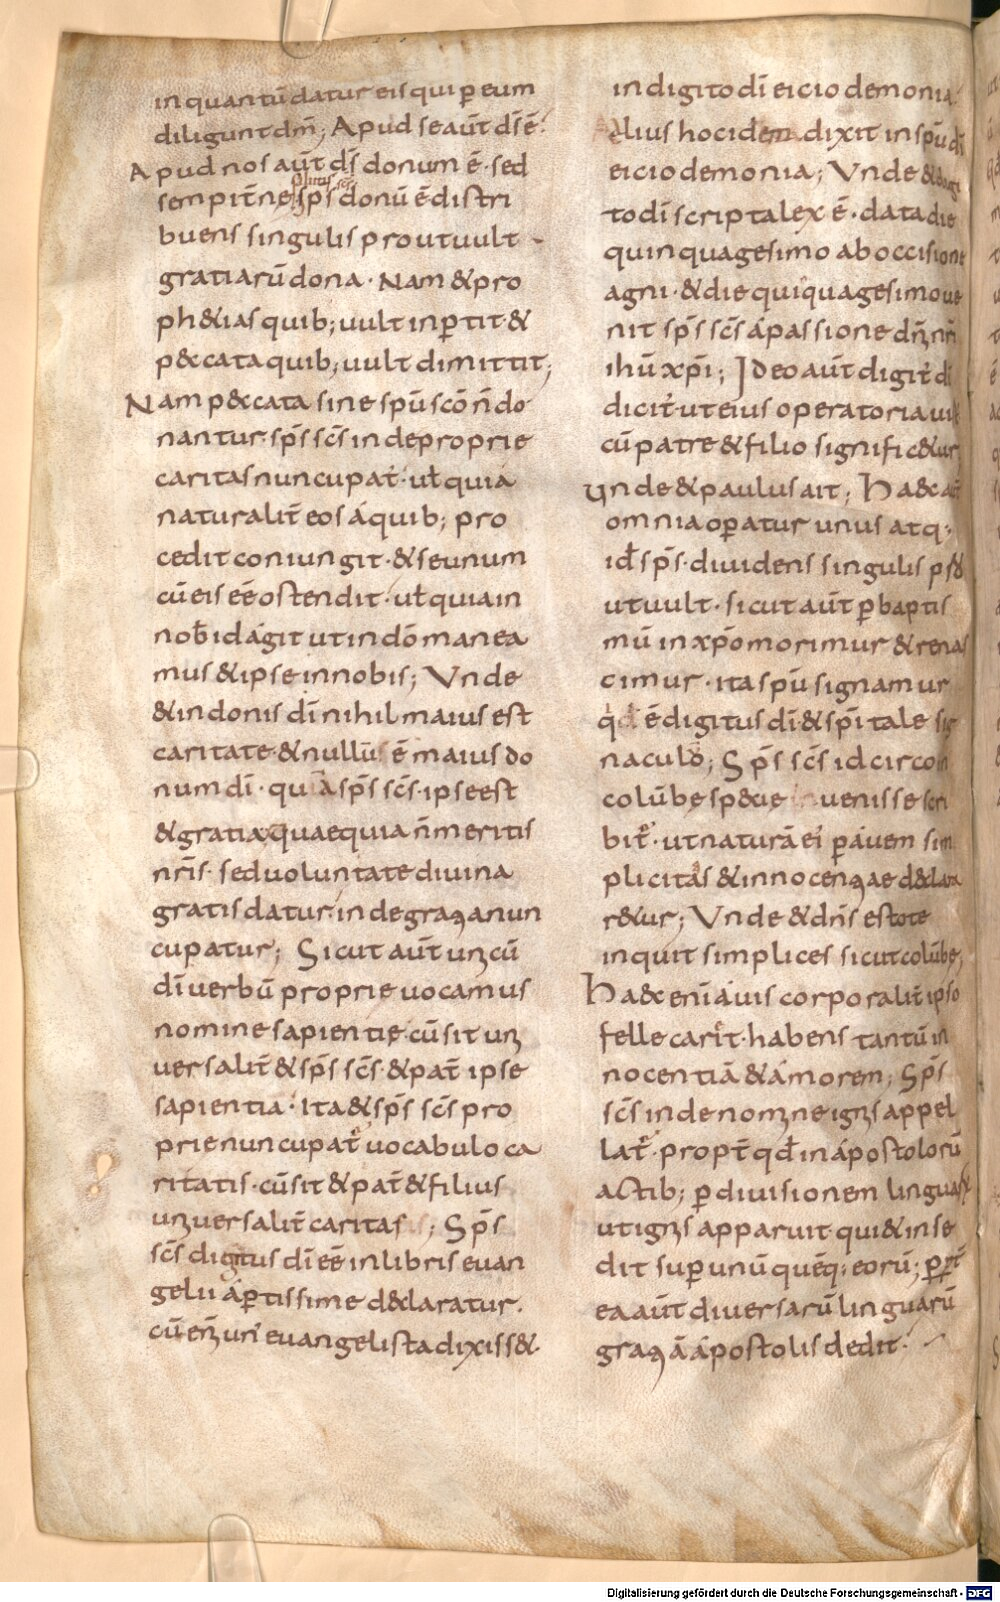 in quantū datur eis qui ꝑ eum
diligunt dm̄; Apud se aūt ds̄ ē·
Apud nos aūt ds̄ donum ē· sed
sempit̄ne sp̄s donū ē distri
buens singulis prout uult
gratiarū dona· Nam & pro
ph&ias quib; uult inꝑtit &
p&cata quib; uult dimittit;
Nam p&cata sine spū scō n̄ do
nantur· sp̄s sc̄s inde proprie
caritas nuncupat̄· ul̄ quia
naturalit̄ eos á quib; pro
cedit coniungit· & se unum
cū eis eē ostendit· ul̄ quia in
nob̄ id ágit ut in dō manea
mus & ipse in nobis; Unde
& in donis dī nihil maius est
caritate & nullū ē maius do
num dī· quā sp̄s sc̄s· ipse est
& gratia quae quia n̄ meritis
nr̄is· sed uoluntate diuina
gratis datur· inde gratia nun
cupatur; Sicut aūt unicū
dī uerbū proprie uocamus
nomine sapientie· cū sit uni
uersalit̄ & sp̄s sc̄s· & pat̄ ipse
sapientia· Ita & sp̄s sc̄s pro
prie nuncupat̄ uocabulo ca
ritatis· cū sit & pat̄ & filius
uniuersalit̄ caritas; Sp̄s
sc̄s digitus dī eē in libris euan
gelii áꝑtissime d&claratur·
cū enī un' euangelista dixiss&·
in digito dī eicio demonia·
Alius hoc idem dixit in spū dī
eicio demonia; Unde & digi
to dī scripta lex ē· data die
quinquagesimo ab occisione
agni· & die quiquagesimo ue
nit sp̄s sc̄s á passione dn̄i nr̄i
ihū xp̄i; Ideo aūt digit̄ dī
dicit̄ ut eius operatoria uis
cū patre & filio signific&ur
Unde & paulus ait; Haec aūt
omnia oꝑatur unus atq;
id̄ sp̄s· diuidens singulis
ut uult· sicut aūt ꝑ baptis
mū in xp̄o morimur & renas
cimur· ita spū signamur
qd̄ ē digitus dī & spītale sig
naculū; Sp̄s sc̄s idcirco in
colūbe sp&ie uenisse scri
bit̄· ut naturā ei' ꝑ áuem sim
plicitas & innocentiae d&clara
r&ur; Unde & dn̄s estote
inquit simplices sicut colūbe;
Haec enī áuis corporalit̄ ipso
felle carit̄· habens tantū in
nocentiā & ámorem; Sp̄s
sc̄s inde nomine ignis appel
lat̄· propt̄ qd̄ in ápostolorū
actib; ꝑ diuisionem linguarū
ut ignis apparuit· qui & inse
dit suꝑ unū quēq; eorū;
ea aūt diuersarū linguarū
gratiā ápostolis dedit·
Digitalisierung gefördert durch die Deutsche Forschungsgemeinschaft - DFG